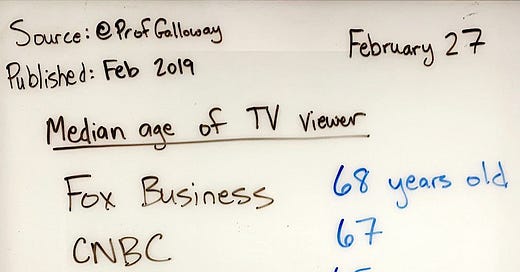 Source: @ProfGalloway
February 27
Published: Feb 2019
Median age of TV viewer
Fox Business 68 years old
CNBC 67